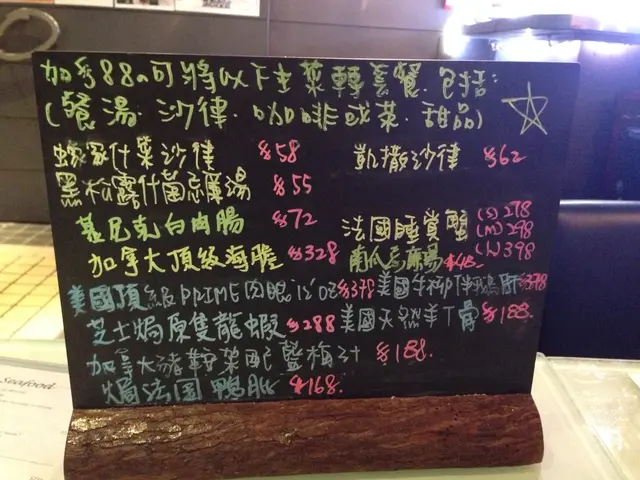 加多88n可將以下主菜轉套餐.包括:
(餐湯.沙律.咖啡或茶.甜品)
什菜沙律 $58 凱撒沙律 $62
黑松露什菌忌廉湯 $55
慕尼克白肉腸 $72 法國睡覺蟹 (S) 278
(M) 298
(L) 398
加拿大頂級海膽 $328 南瓜忌廉湯 $48
美國頂級PRIME肉眼12oz $378 美國 $398
芝士焗原隻龍蝦 $288 美國天然羊T骨 $188.
加拿大豬鞍架配藍梅汁 $188.
焗法國鴨脾 $168.
Seafood